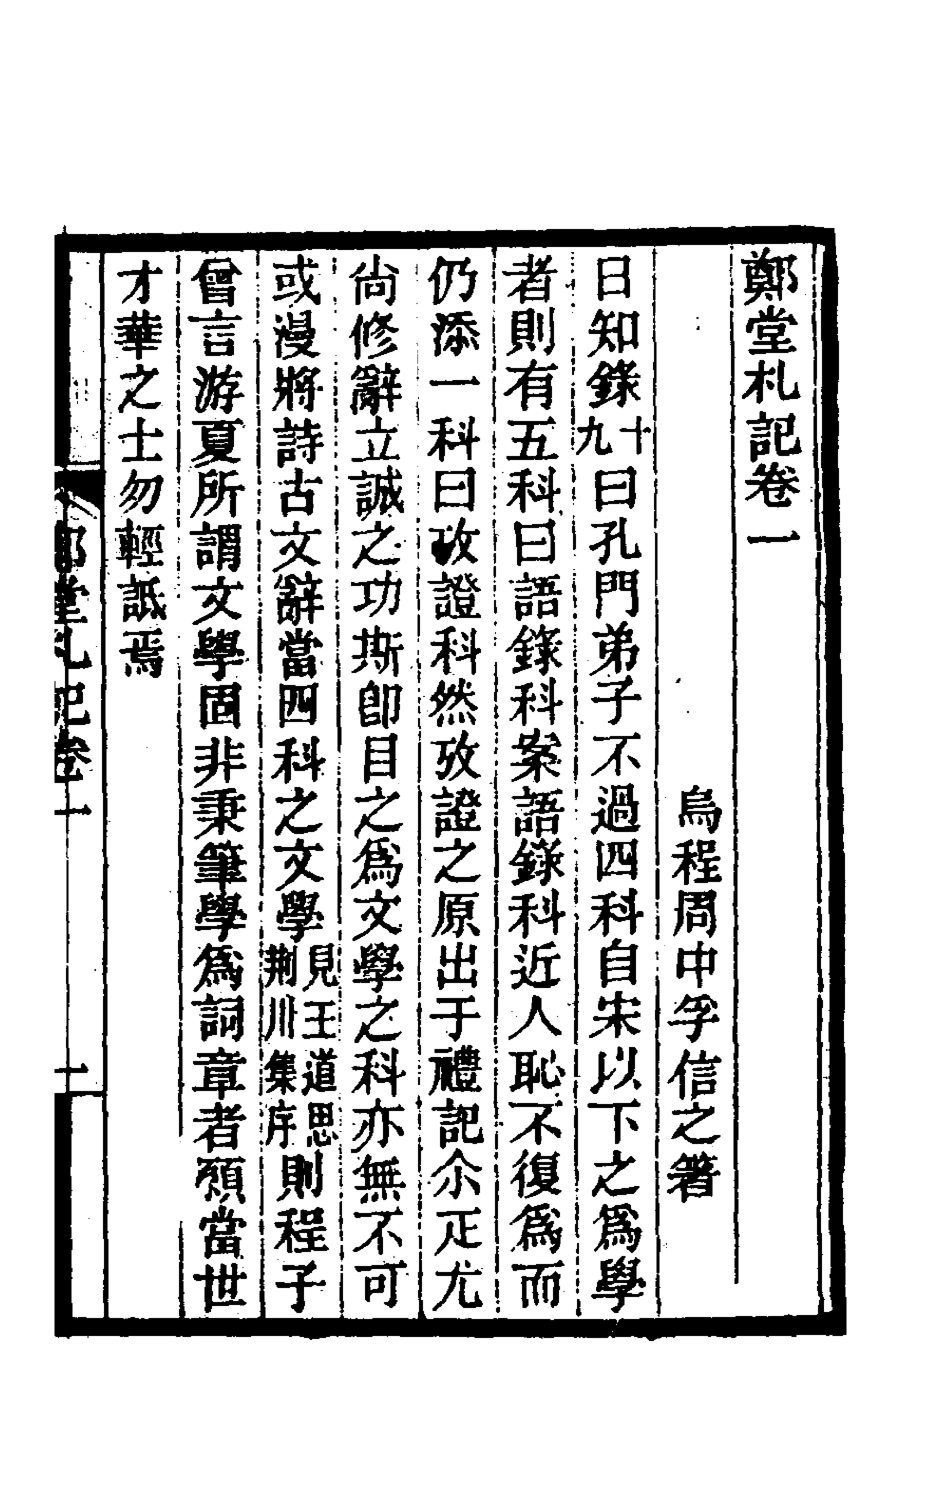 鄭堂札記卷一
烏程周中孚信之箸
日知錄十九曰孔門弟子不過四科自宋以下之爲學
者則有五科曰語錄科案語錄科近人恥不復爲而
仍添一科曰攷證科然攷證之原出于禮記尒疋尤
尙修辭立誠之功斯卽目之爲文學之科亦無不可
或漫將詩古文辭當四科之文學見王道思荆川集序則程子
曾言游夏所謂文學固非秉筆學爲詞章者顧當世
才華之士勿輕詆焉
鄭堂札記卷一
一